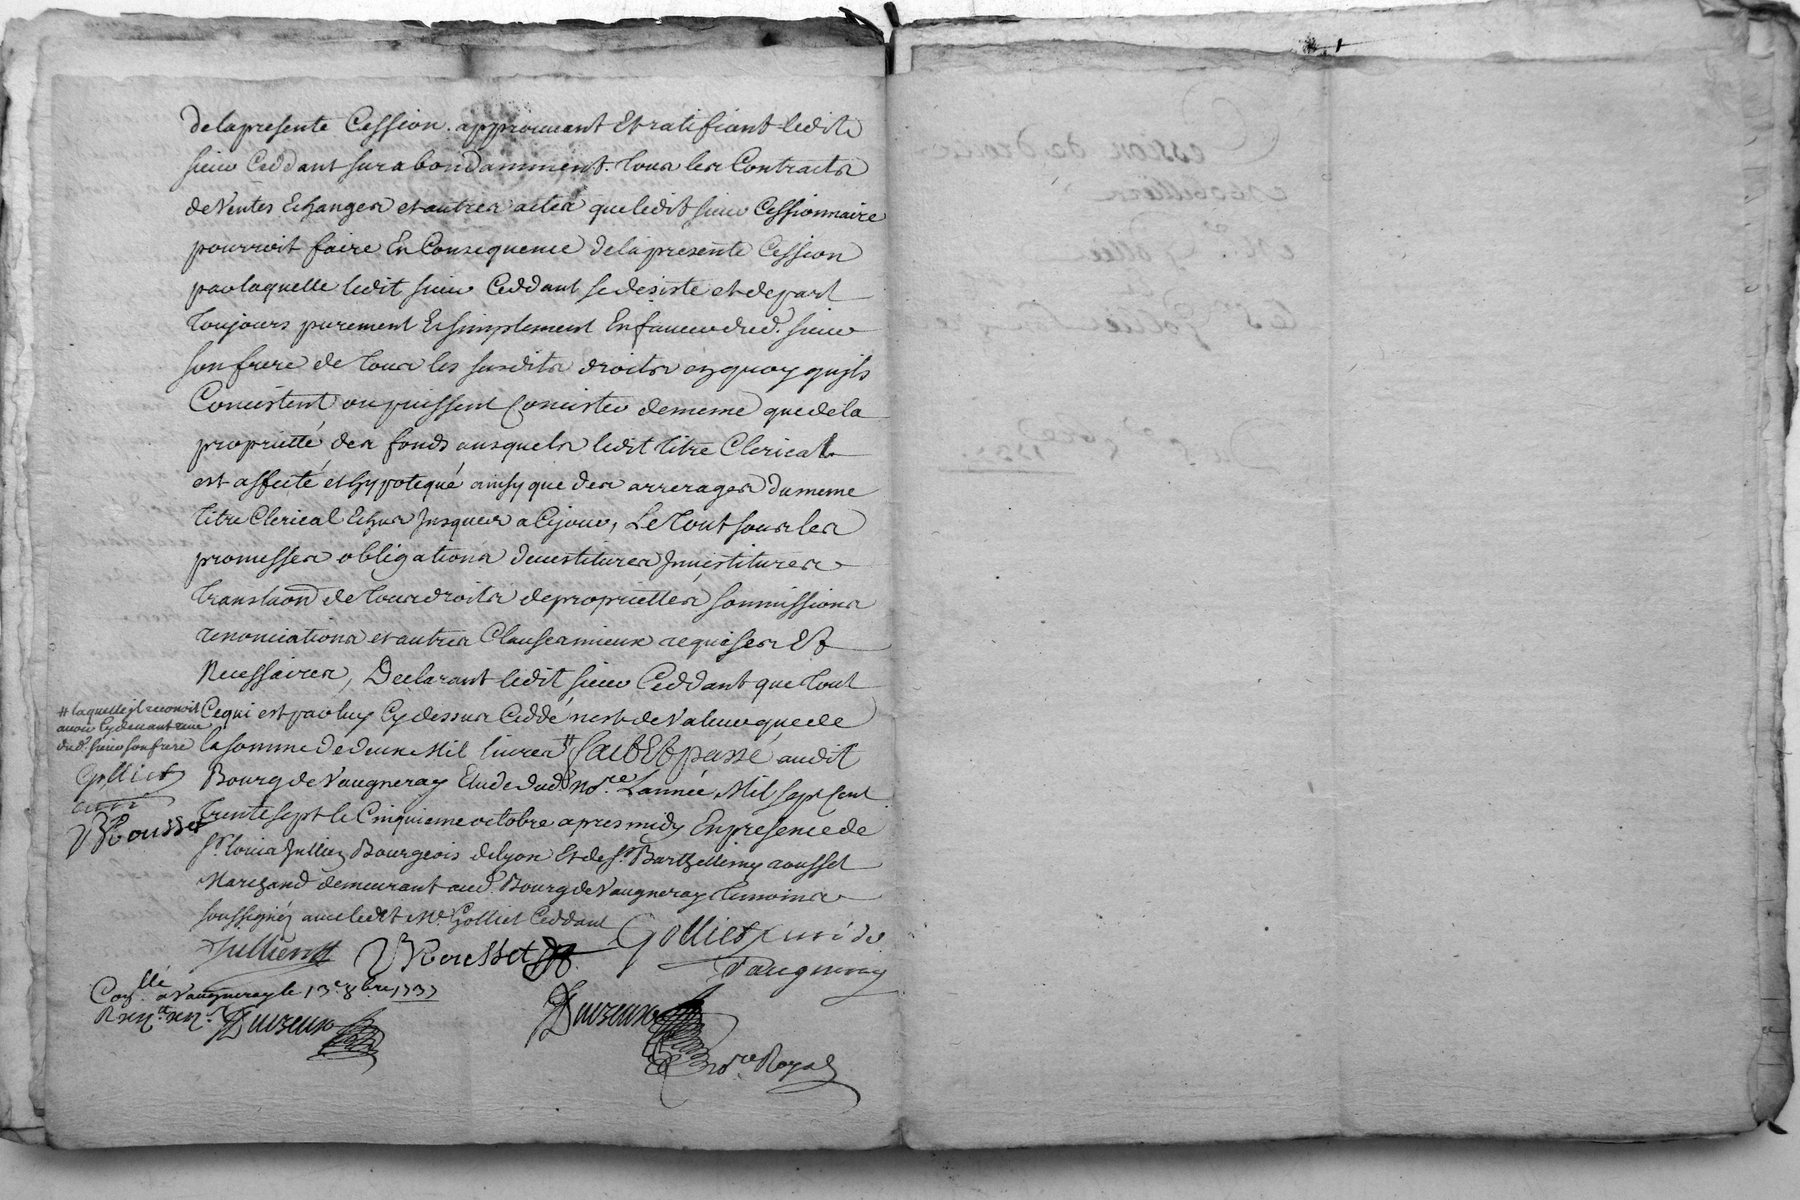 de la presente Cession. approuvant Et ratifiant ledit
sieur Ceddant surabondamment. tous les Contracts
de Ventes Echanges et autres actes que ledit sieur Cessionnaire
pourroit faire En Consequence de la presente Cession
par laquelle ledit sieur Ceddant se desiste et depart
toujours purement Et simplement En faveur dud. sieur
son frere de tous les susdits droits enquoy quils
Concistent ou puissent Concister de meme que de la
proprietté des fonds ausquels ledit titre Clerical
est affecté et hypotequé ainsy que des arrerages du meme
titre Clerical Echus Jusques a Cejour, Le tout sous les
promesses obligations devestitures Jnvestitures
translaon de tous droits de propriettés soumissions
renonciations et autres Clauses mieux requises Et
Necessaires, Declarant ledit sieur Ceddant que tout
Cequi est par luy Cy dessus Ceddé nest de Valeur que de
la somme de deux Mil livres # fait Et passé audit
# laquelle il reconoit
avoir Cy devant reue
dud. sieur son frere
Golliet
curé
VRousset
Bourg de Vaugneray Etude dud. Nore. L'année Mil sept Cent
trente sept le Cinquieme octobre apres midy En presence de
Sr. louis Jullien Bourgeois de lyon Et de Sr. Barthellemy rousset
Marchand demeurant aud. Bourg de Vaugneray temoins
soussignés avec ledit Me. Golliet Ceddant
Jullien VRousset Golliet curé de
Vaugneray
Conllé. a Vaugneray le 13e. 8bre 1737
Duizeux Duizeux
Nore. Royal
Cession de droits
mobiliers
Mre. Golliet
le Sr. Golliet son frere
Du 5e.
1737.